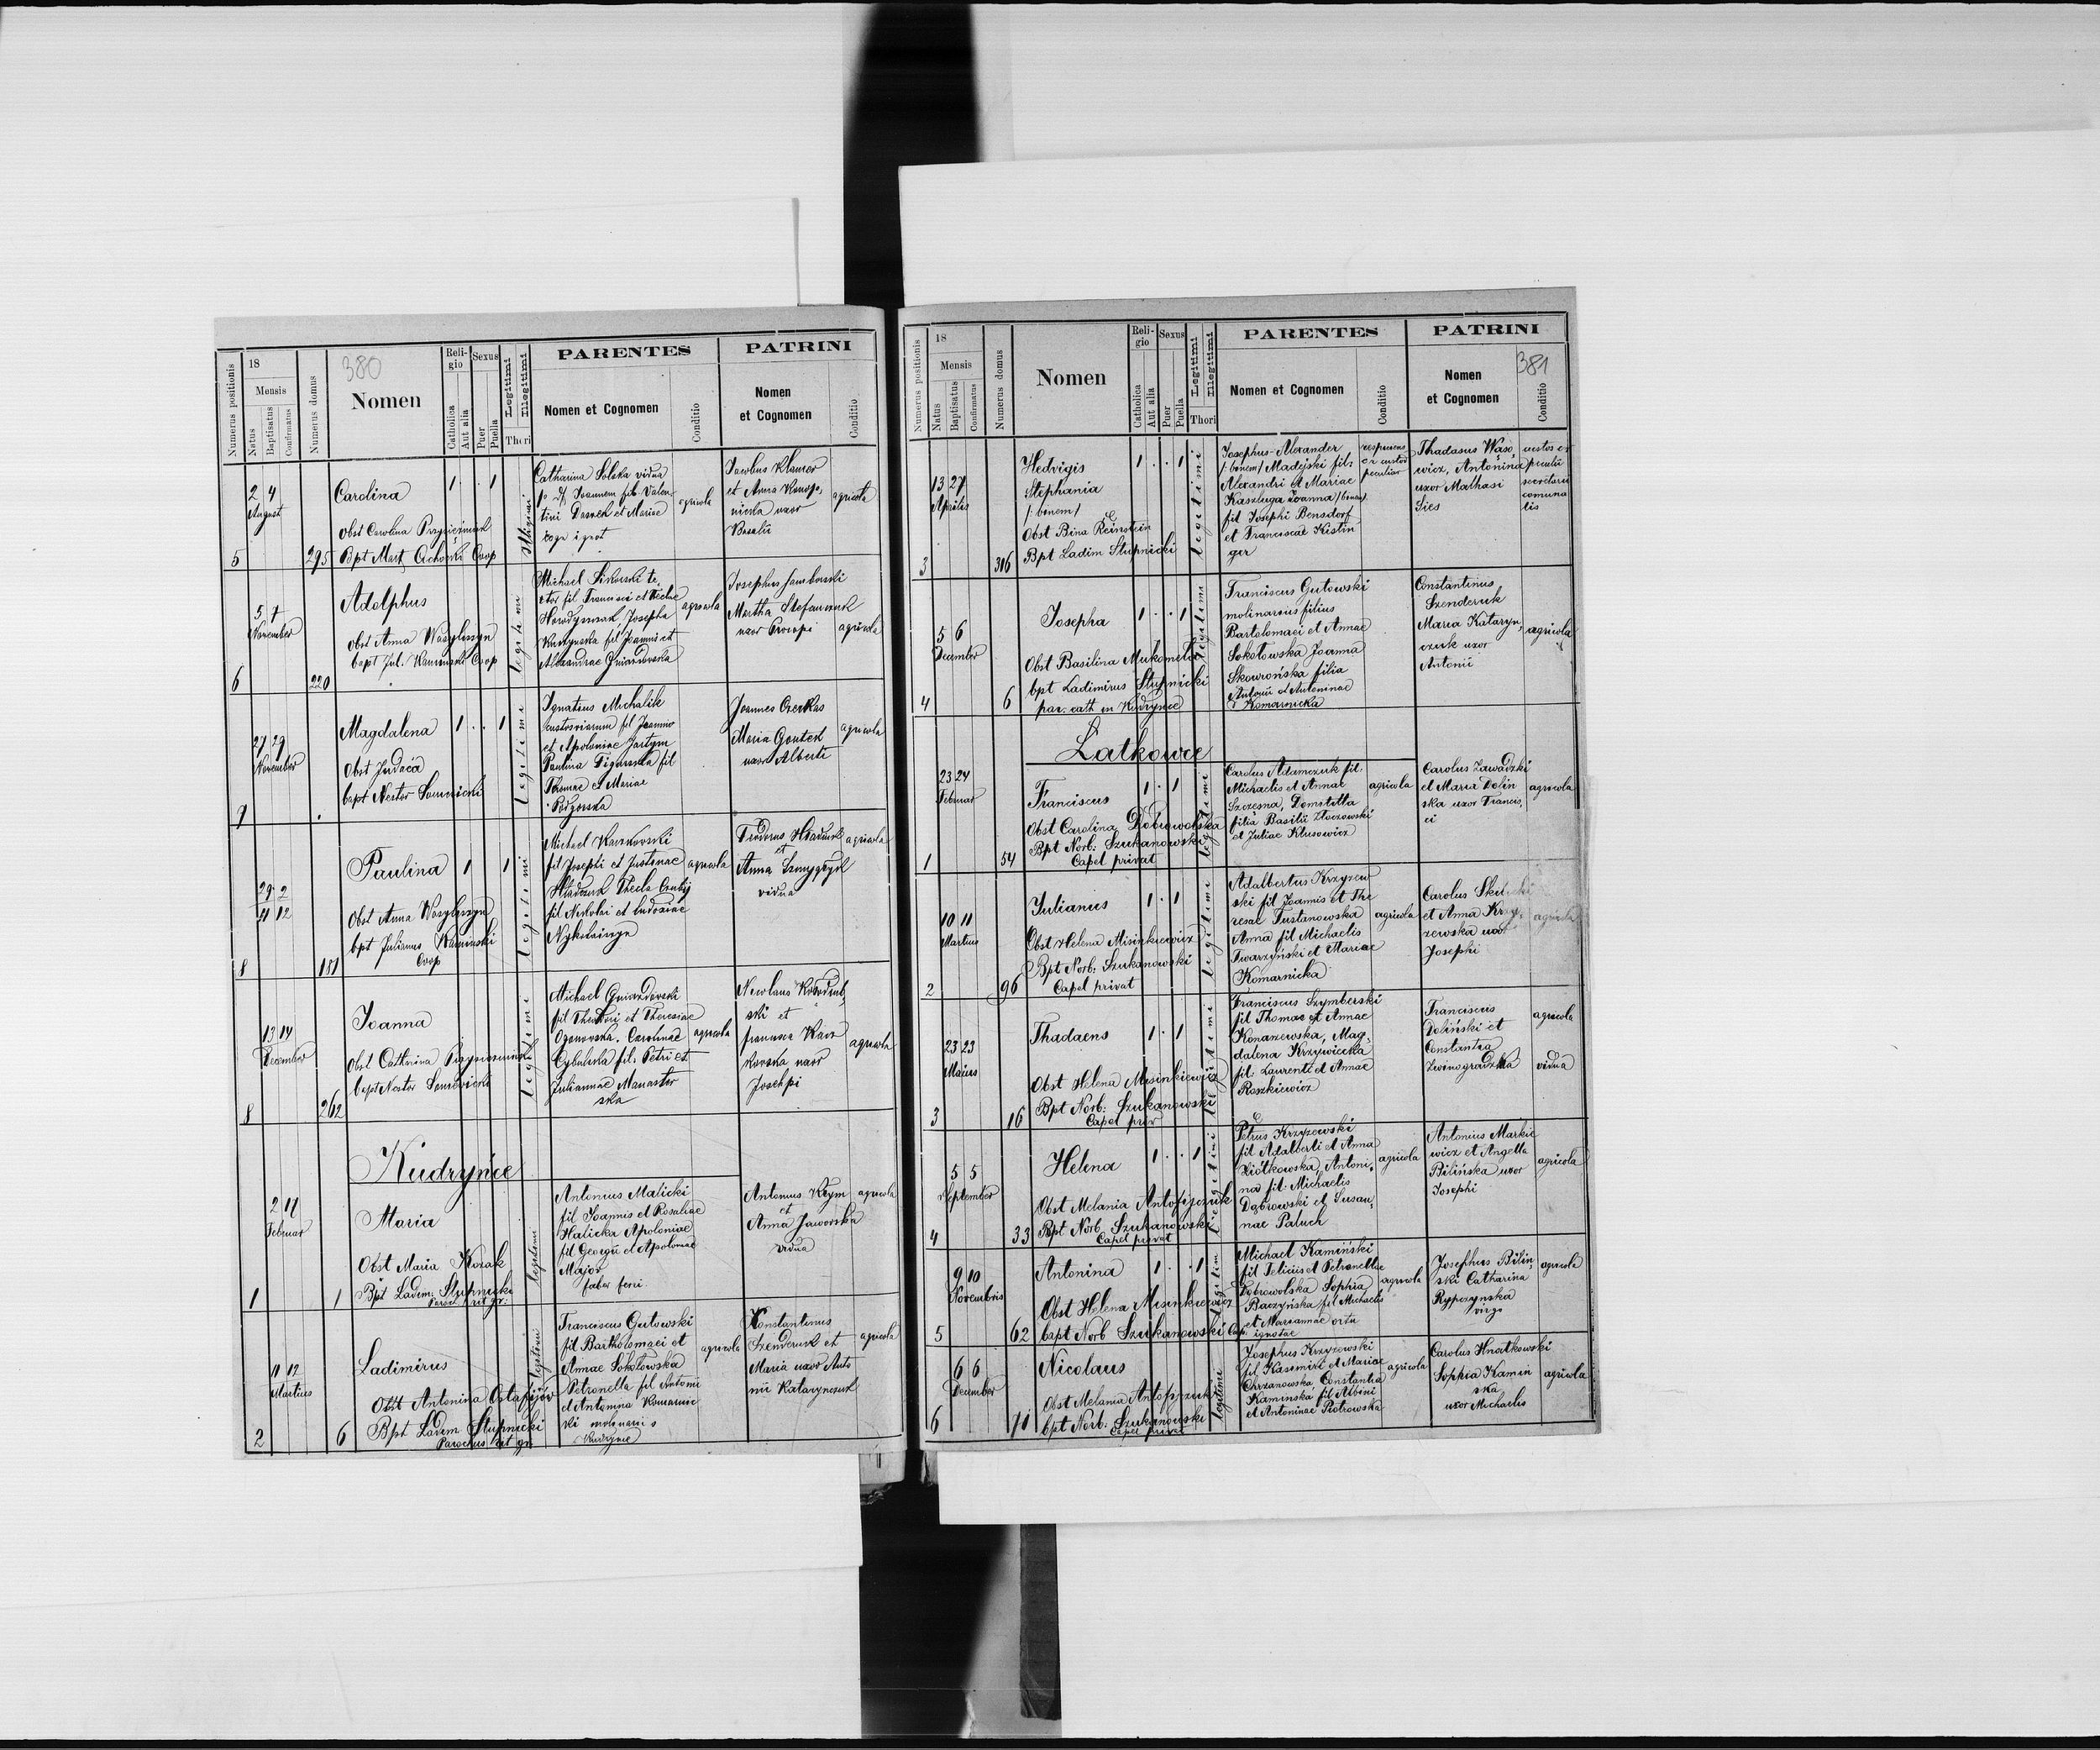 380
Numerus positionis
18
Mensis
Natus
Baptisatus
Confirmatus
Numerus domus
Nomen
Religio
Catholica
Aut alia
Sexus
Puer
Puella
Legitimi
Illegitimi
Thori
PARENTES
Nomen et Cognomen
Conditio
PATRINI
Nomen
et Cognomen
Conditio
5
2 4
August
295
Carolina
Obst Carolina
Bpt Mart Cichocki Coop
1 1
Illegitimi
Catharina Solska vidua
p. df. Joannem fil. Valen
tini et Mariae
agricola
Jacobus Klamer
et Anna Konop
nicka uxor
Basilii
agricola
6
5 7
November
220
Adolphus
Obst Anna Wasylyszyn
bapt Jul. Kaminski Coop
legitimi
Michael Sikorski te
ctor fil Francisci et Theclae
Horodynsak Josepha
fil Joannis et
Alexandrae Gwiazdowska
agricola
Josephus Jamborski
Martha Stefaniuk
uxor Procopi
agricola
7
27 29
November
Magdalena
Obst Judaea
bapt Nestor
1 . . 1
legitimi
Ignatius Michalik
fil Joannis
et Apoloniae
Paulina fil
Thomae et Mariae
Podgorska
Joannes Czerkas
Maria Gontek
uxor Alberti
agricola
8
29 2
11 12
181
Paulina
Obst Anna Wasylyszyn
bpt Julianus Kaminski
Coop
1 1
legitimi
Michael Karnkowski
fil Josephi et Justinae
Hladczuk Thecla
fil Nikolai et Eudoxiae
Nykolaiszyn
agricola
Teodorus Hladczuk
et
Anna
vidua
agricola
8
13 14
December
262
Joanna
Obst Catharina
bapt Nestor
legitimi
Michael Gwiazdowski
fil Theodori et Theresiae
Carolinae
Cybulska fil. Petri et
Juliannae Manaster
ska
agricola
Nicolaus
ski et
francisca Karn
kowska uxor
Josephi
agricola
Kudryńce
1
2 17
Februar
1
Maria
Obst Maria Kozak
Bpt Ladim: Stupnicki
Paroch. rit gr:
legitimi
Antonius Malicki
fil Joannis et Rosaliae
Halicka Apoloniae
fil Georgii et Apoloniae
Major
faber ferri.
Antonius Krym
et
Anna Jaworska
vidua
agricola
2
11 12
Martius
6
Ladimirus
Obst Antonina Ostafijów
Bpt Ladim Stupnicki
Parochus rit gr:
legitimi
Franciscus Gutowski
fil Bartholomaei et
Annae Sokołowska
Petronella fil Antonii
et Antonina Komarnic
ki molinarius
Kudryńce
agricola
Konstantinus
Szenderuk et
Maria uxor Anto
nii Katarynczuk
agricola
381
Numerus positionis
18
Mensis
Natus
Baptisatus
Confirmatus
Numerus domus
Nomen
Religio
Catholica
Aut alia
Sexus
Puer
Puella
Legitimi
Illegitimi
Thori
PARENTES
Nomen et Cognomen
Conditio
PATRINI
Nomen
et Cognomen
Conditio
3
13 27
Aprilis
316
Hedvigis
Stephania
/: binom /
Obst Bina Reinstein
Bpt Ladim Stupnicki
1 . . 1
legitimi
Josephus-Alexander
/: binom / Madejski fil:
Alexandri et Mariae
Kaszluga Joanna / binom /
fil Josephi Bensdorf
et Franciscae Kistin
ger
Thadaeus Wąso
wicz, Antonina
uxor Mathasi
Sies
4
5 6
December
6
Josepha
Obst Basilina Mukomela
bpt Ladimirus Stupnicki
par. cath in Kudryńce
1 . . 1
legitimi
Franciscus Gutowski
molinarius filius
Bartolomaei et Annae
Sokołowska Joanna
Skowrońska filia
Antonii et Antoninae
Komarnicka
Constantinus
Szenderuk
Maria Kataryn
czuk uxor
Antonii
agricola
Latkowce
1
23 24
Februar
54
Franciscus
Obst Carolina Dobrowolska
Bpt Norb: Szukanowski
Capel privat
1 . 1
legitimi
Carolus Adamczuk fil:
Michaelis et Annae
Szczesna, Domitilla
filia Basilii Złoczowski
et Juliae Klusowicz
agricola
Carolus Zawadzki
et Maria Dolin
ska uxor Francis
ci
agricola
2
10 11
Martius
96
Julianus
Obst Helena Misinkiewicz
Bpt Norb: Szukanowski
Capel privat
1 . 1
legitimi
Adalbertus Krzyzew
ski fil Joannis et The
resae Tustanowska
Anna fil Michaelis
Twarzyński et Mariae
Komarnicka
agricola
Carolus
et Anna Krzy
zewska uxor
Josephi
agricola
3
23 23
Maius
16
Thadaeus
Obst Helena Misinkiewicz
Bpt Norb: Szukanowski
Capel priv
1 . 1
legitimi
Franciscus Szymberski
fil Thomae et Annae
Konarzewska, Mag
dalena Krzywicka
fil: Laurenti et Annae
Roszkiewicz
Franciscus
Doliński et
Constantia
Zwinogradzka
agricola
vidua
4
5 5
September
33
Helena
Obst Melania Antofijczuk
Bpt Norb Szukanowski
Capel privat
1 . . 1
legitimi
Petrus Krzyzewski
fil Adalberti et Anna
Ziółkowska, Antoni
na fil: Michaelis
Dąbrowski et Susan
nae Paluch
agricola
Antonius Markie
wicz et Angella
Bilińska uxor
Josephi
agricola
5
9 10
Novembris
62
Antonina
Obst Helena Misinkiewicz
bapt Norb Szukanowski Cap.
1 . . 1
legitimi
Michael Kamiński
fil Felicis et Petronellae
Dobrowolska Sophia
Baczyńska fil Michaelis
et Mariannae ortu
ignotae
agricola
Josephus Bilin
ski Catharina
Rypczynska
virgo
agricola
6
6 6
December
71
Nicolaus
Obst Melania Antofijczuk
bpt Norb: Szukanowski
Capel privat
legitimi
Josephus Krzyzowski
fil Kasimiri et Mariae
Chrzanowska, Constantia
Kaminska fil Albini
et Antoninae Piotrowska
agricola
Carolus Hnatkowski
Sophia Kamin
ska
uxor Michaelis
agricola